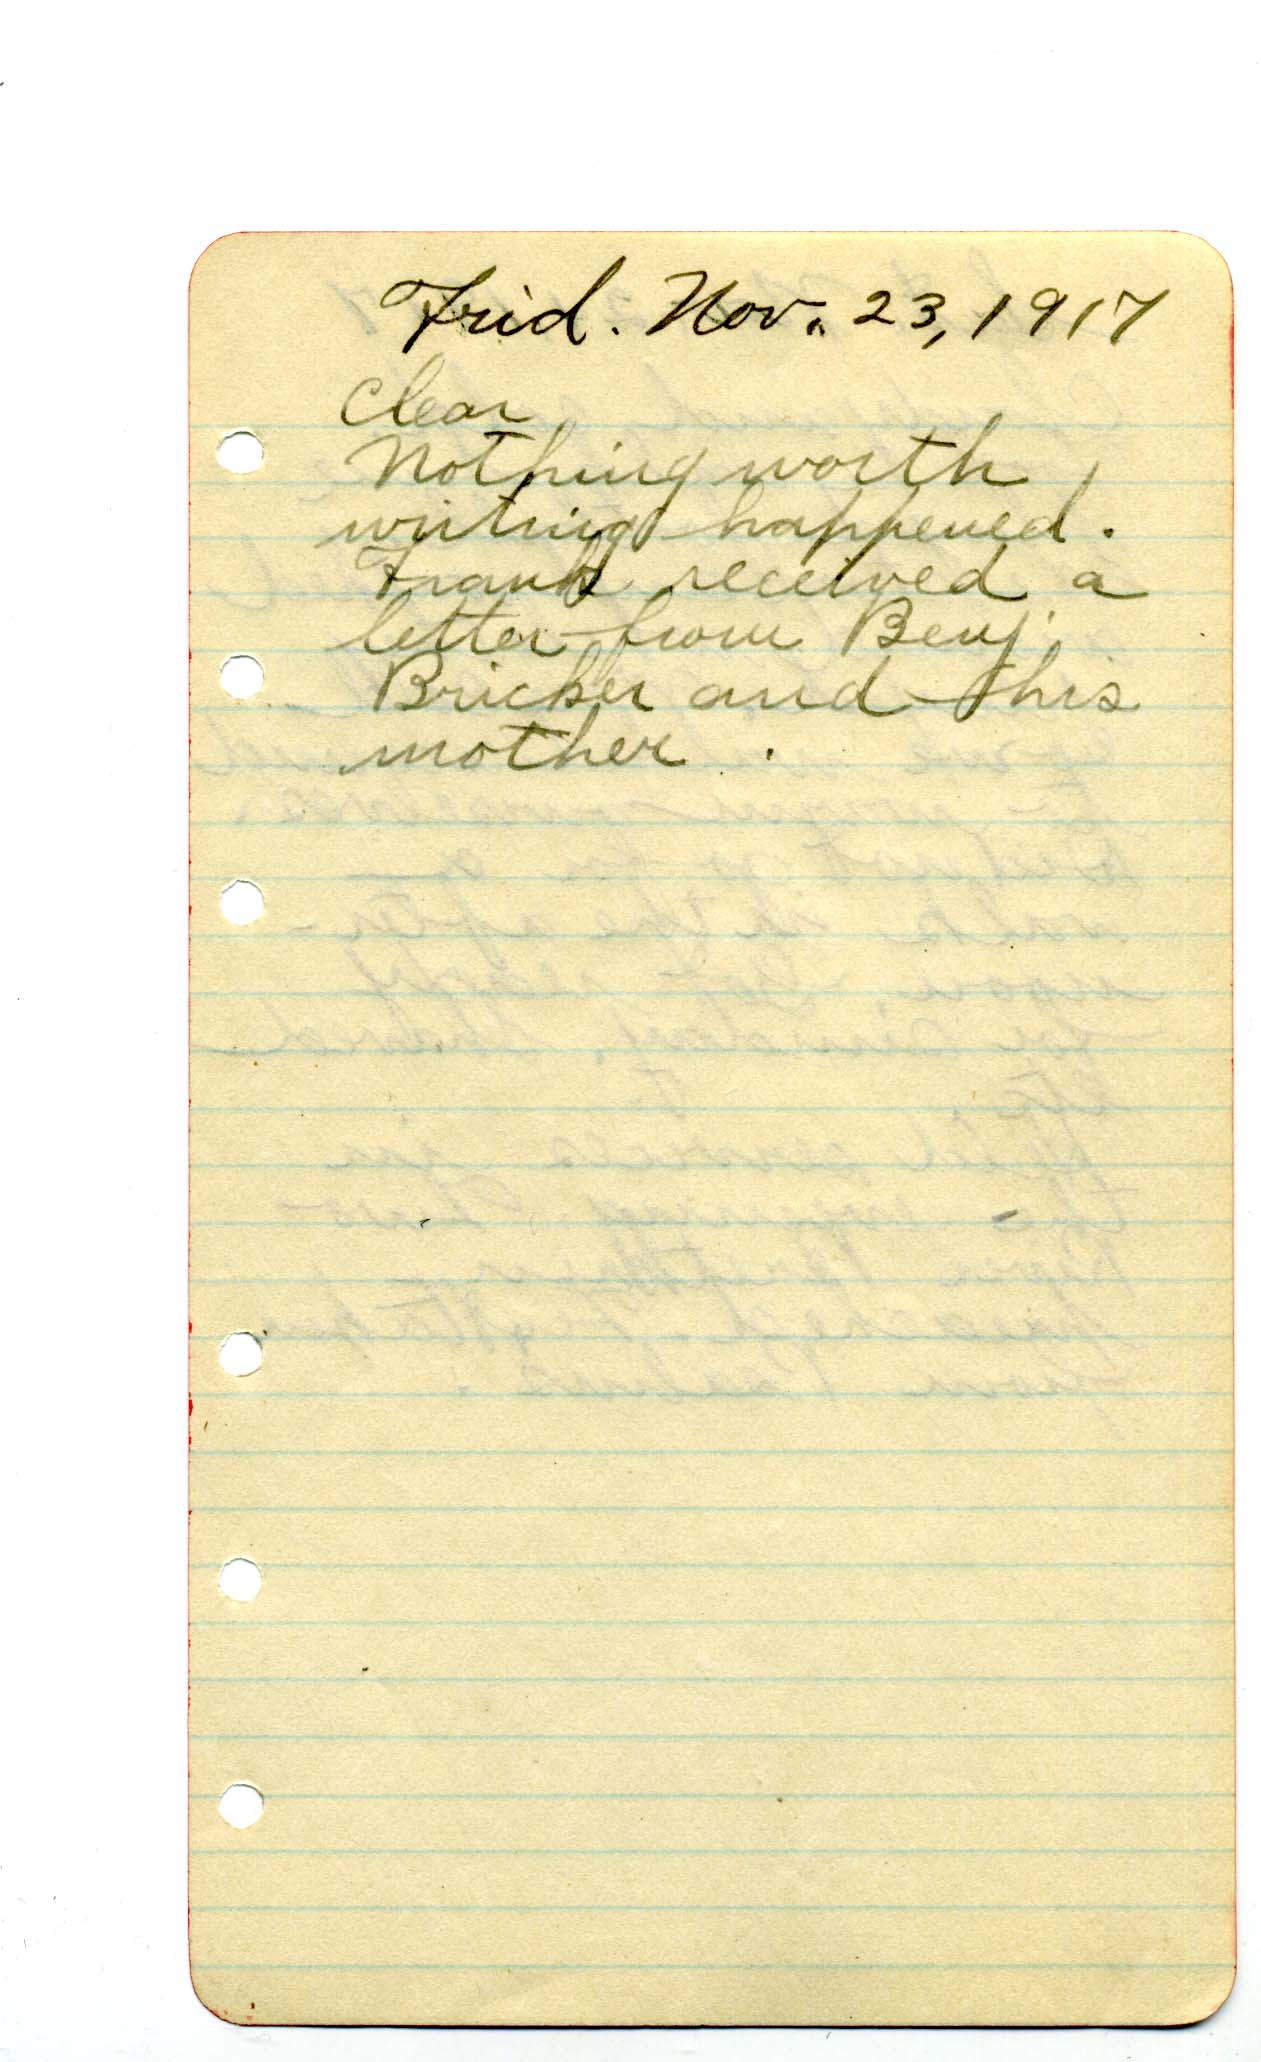 Frid. Nov. 23, 1917
Clear
Nothing worth
writing happened.
Frank received a
letter from Benj.
Bricker and his
mother.